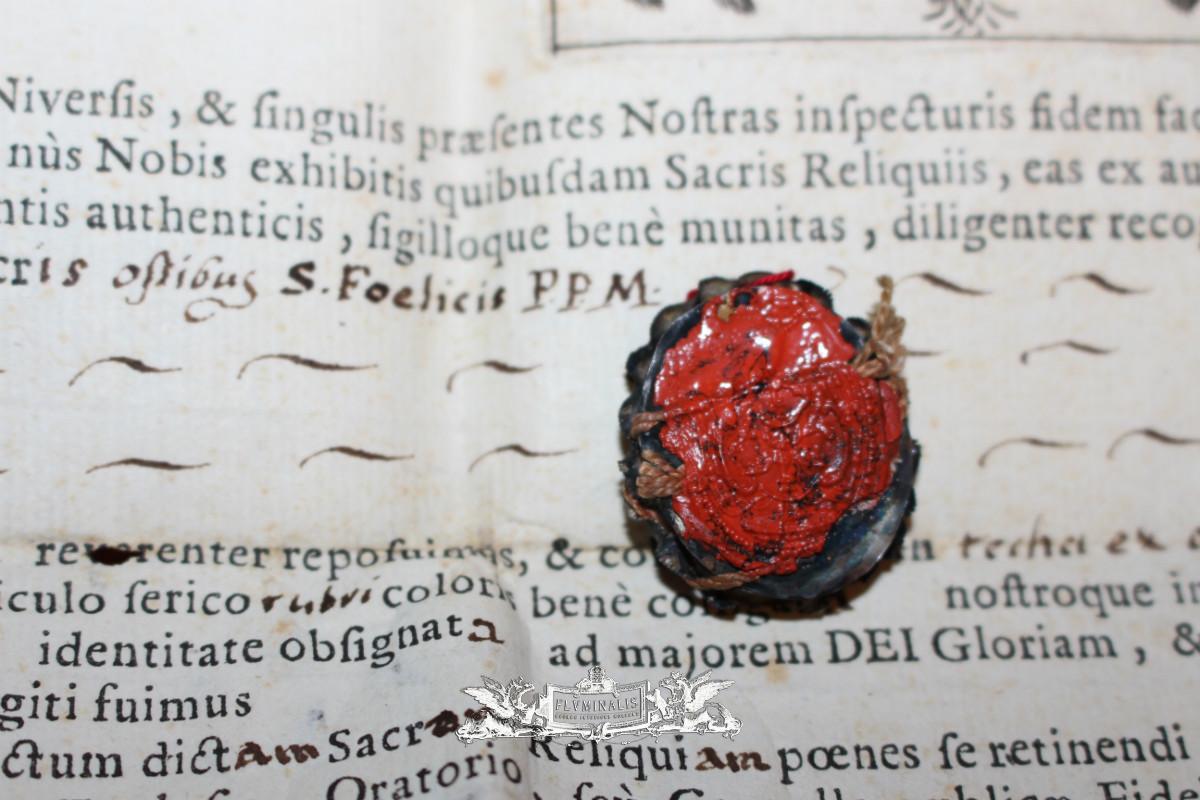 Niverſis, & ſingulis præſentes Noſtras inſpecturis fidem fac
nùs Nobis exhibitis quibuſdam Sacris Reliquiis, eas ex au
ntis authenticis, ſigilloque benè munitas, diligenter reco
cris oſſibus S. Foelicis P.P.M.
reverenter repoſuimus, & co
iculo ſerico rubri coloris benè noſtroque in
identitate obſignata ad majorem DEI Gloriam, &
giti fuimus
ctum dictam Sacram Reliquiam pœnes ſe retinendi
Oratorio
FLVMINALIS